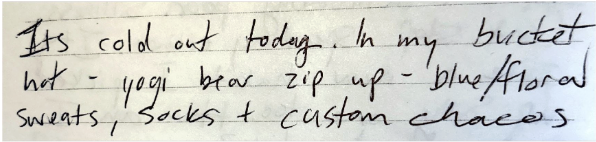 Its cold out today. In my bucket
hat - yogi bear zip up - blue/floral
sweats, socks + custom chacos